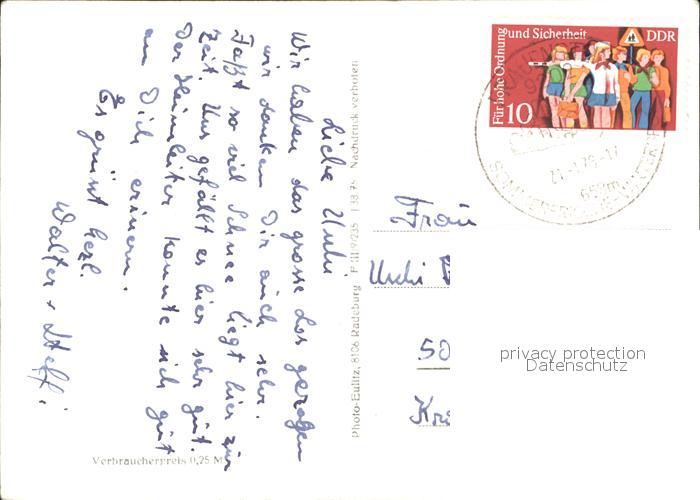 Liebe Uschi
Wir haben das grosse Los gezogen
wir danken Dir auch sehr.
Faßt so viel Schnee liegt hier zur
Zeit. Uns gefällt es hier sehr gut.
Der Heimleiter konnte sich gut
an Dich erinern.
Es grüsst herzl.
Walter + Steffi
Verbraucherpreis 0,25 M
Photo-Eulitz, 8106 Radeburg P III/9/235 Nachdruck verboten
Für hohe Ordnung und Sicherheit
DDR
10
650m
Frau
Uschi
50
privacy protection
Datenschutz